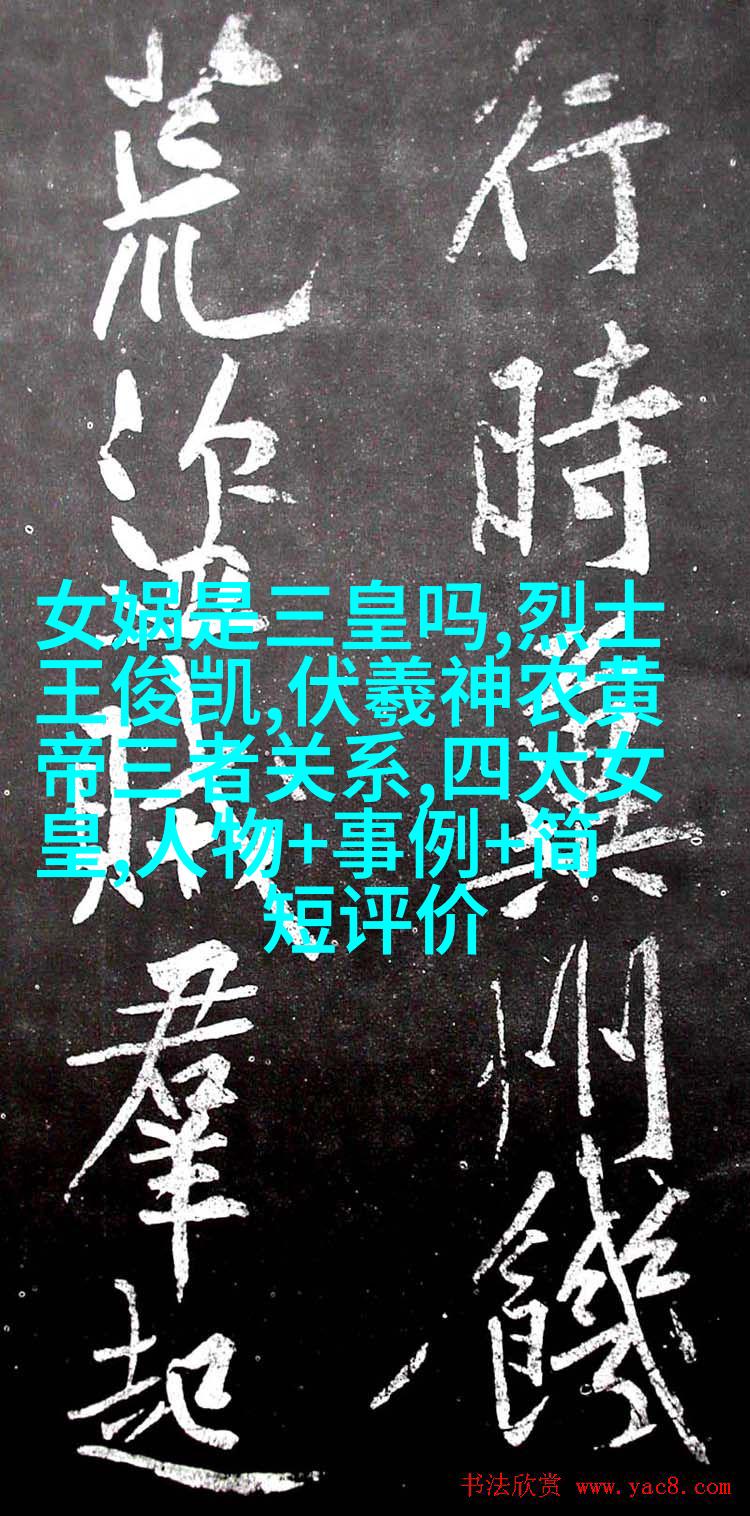 行時冀州饑
荒盗賊羣起
女娲是三皇吗,烈士
王俊凯,伏羲神农黄
帝三者关系,四大女
皇,人物+事例+简
短评价
书法欣赏 www.yac8.com